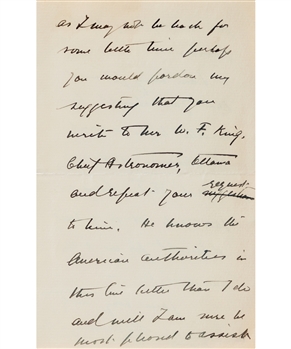 as I may not be back for
some little time perhaps
you would pardon my
suggesting that you
write to W. F. King,
Chief Astronomer, Ottawa
and repeat your request
to him. He knows the
American authorities in
this line better than I do
and will I am sure be
most pleased to assist